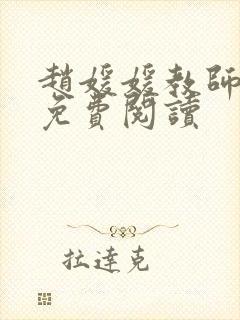 趙媛媛教師
免費閱讀
拉達克